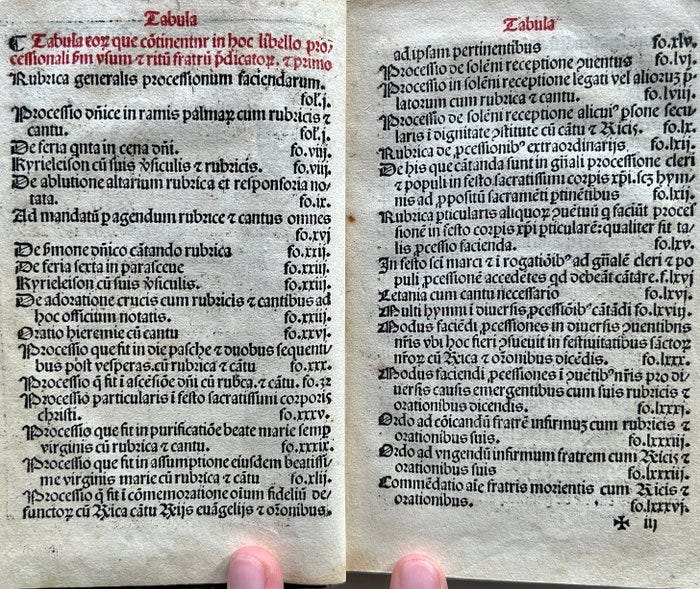 Tabula
¶ Tabula eoꝝ que cõtinentur in hoc libello pro⸗
cessionali ẜm vsum ⁊ ritũ fratrũ p̃dicatoꝝ. ⁊ primo
Rubrica generalis processionum faciendarum.
fol.j.
Processio dñice in ramis palmaꝝ cum rubricis ⁊
cantu. fol.j.
De feria q̃nta in cena dñi. fo.viij.
Kyrieleison cũ suis v̾siculis ⁊ rubricis. fo.viij.
De ablutione altarium rubrica et responsoria no⸗
tata. fo.ix.
Ad mandatũ ꝑ agendum rubrice ⁊ cantus omnes
fo.xvj
De ẜmone dñico cãtando rubrica fo.xxij.
De feria sexta in parasceue fo.xxiij.
Kyrieleison cũ suis v̾siculis. fo.xxiij.
De adoratione crucis cum rubricis ⁊ cantibus ad
hoc officium notatis. fo.xxiij.
Oratio hieremie cũ cantu fo.xxvj.
Processio que fit in die pasche ⁊ duobus sequenti⸗
bus post vesperas.cũ rubrica ⁊ cãtu fo.xxx.
Processio q̃ fit i ascẽsiõe dñi cũ rub̾ca. ⁊ cãtu. fo.32
Processio particularis i festo sacratissimi corporis
christi. fo.xxxv.
Processio que fit in purificatiõe beate marie semꝑ
virginis cũ rubrica ⁊ cantu. fo.xxxix.
Processio que fit in assumptione eiusdem beatissi⸗
me virginis marie cũ rubrica ⁊ cãtu fo.xlij.
Processio q̃ fit i cõmemoratione oĩum fideliũ de⸗
functoꝝ cũ R̃ica cãtu R̃ijs euãgelijs ⁊ or̃onibus.
Tabula
ad ipsam pertinentibus fo.xlv.
Processio de solẽni receptione ꝯuentus fo.lvj.
Processio in solẽni receptione legati vel alioruꝫ p̃⸗
latorum cum rubrica ⁊ cantu. fo.lviij.
Processio de solẽni receptione alicui᷒ ꝑsone secu⸗
laris i dignitate ꝯstitute cũ cãtu ⁊ R̃icis. fo.lx.
Rubrica de ꝓcessionib᷒ extraordinarijs fo.lxij.
De his que cãtanda sunt in gñali processione cleri
⁊ populi in festo sacratissimi corpis xp̃i. scꝫ hym⸗
nis ad ꝓpositũ sacramẽti ꝑtinẽtibus fo.lxij.
Rubrica ꝑticularis aliquoꝝ ꝯuẽtuũ q̃ faciũt proces
sionẽ in festo corpis xp̃i ꝑticularẽ: qualiter fit ta⸗
lis ꝓcessio facienda. fo.lxv.
In festo sc̃i marci ⁊ i rogatiõib᷒ ad gñalẽ cleri ⁊ po
puli ꝓcessionẽ accedẽtes qd debeãt cãtare. f.lxvj
Letania cum cantu necessario fo.lxvj.
Multi hymni i diuersis ꝓcessiõib᷒ cãtãdi fo.lxviij.
Modus faciẽdi ꝓcessiones in diuersis ꝯuentibus
nr̃is vbi hoc fieri ꝯsueuit in festiuitatibus sãctoꝝ
nr̃oꝝ cũ R̃ica ⁊ or̃onibus dicẽdis. fo.lxxx.
Modus faciendi ꝓcessiones i ꝯuẽtib᷒ nr̃is pro di⸗
uersis causis emergentibus cum suis rubricis ⁊
orationibus dicendis. fo.lxxxj.
Ordo ad cõicandũ fratrẽ infirmuꝫ cum rubricis ⁊
orationibus suis. fo.lxxxiij.
Ordo ad vngendũ infirmum fratrem cum R̃icis ⁊
orationibus suis fo.lxxxiij.
Commẽdatio aĩe fratris morientis cum R̃icis ⁊
orationibus. fo.lxxxvj.
✠ iij